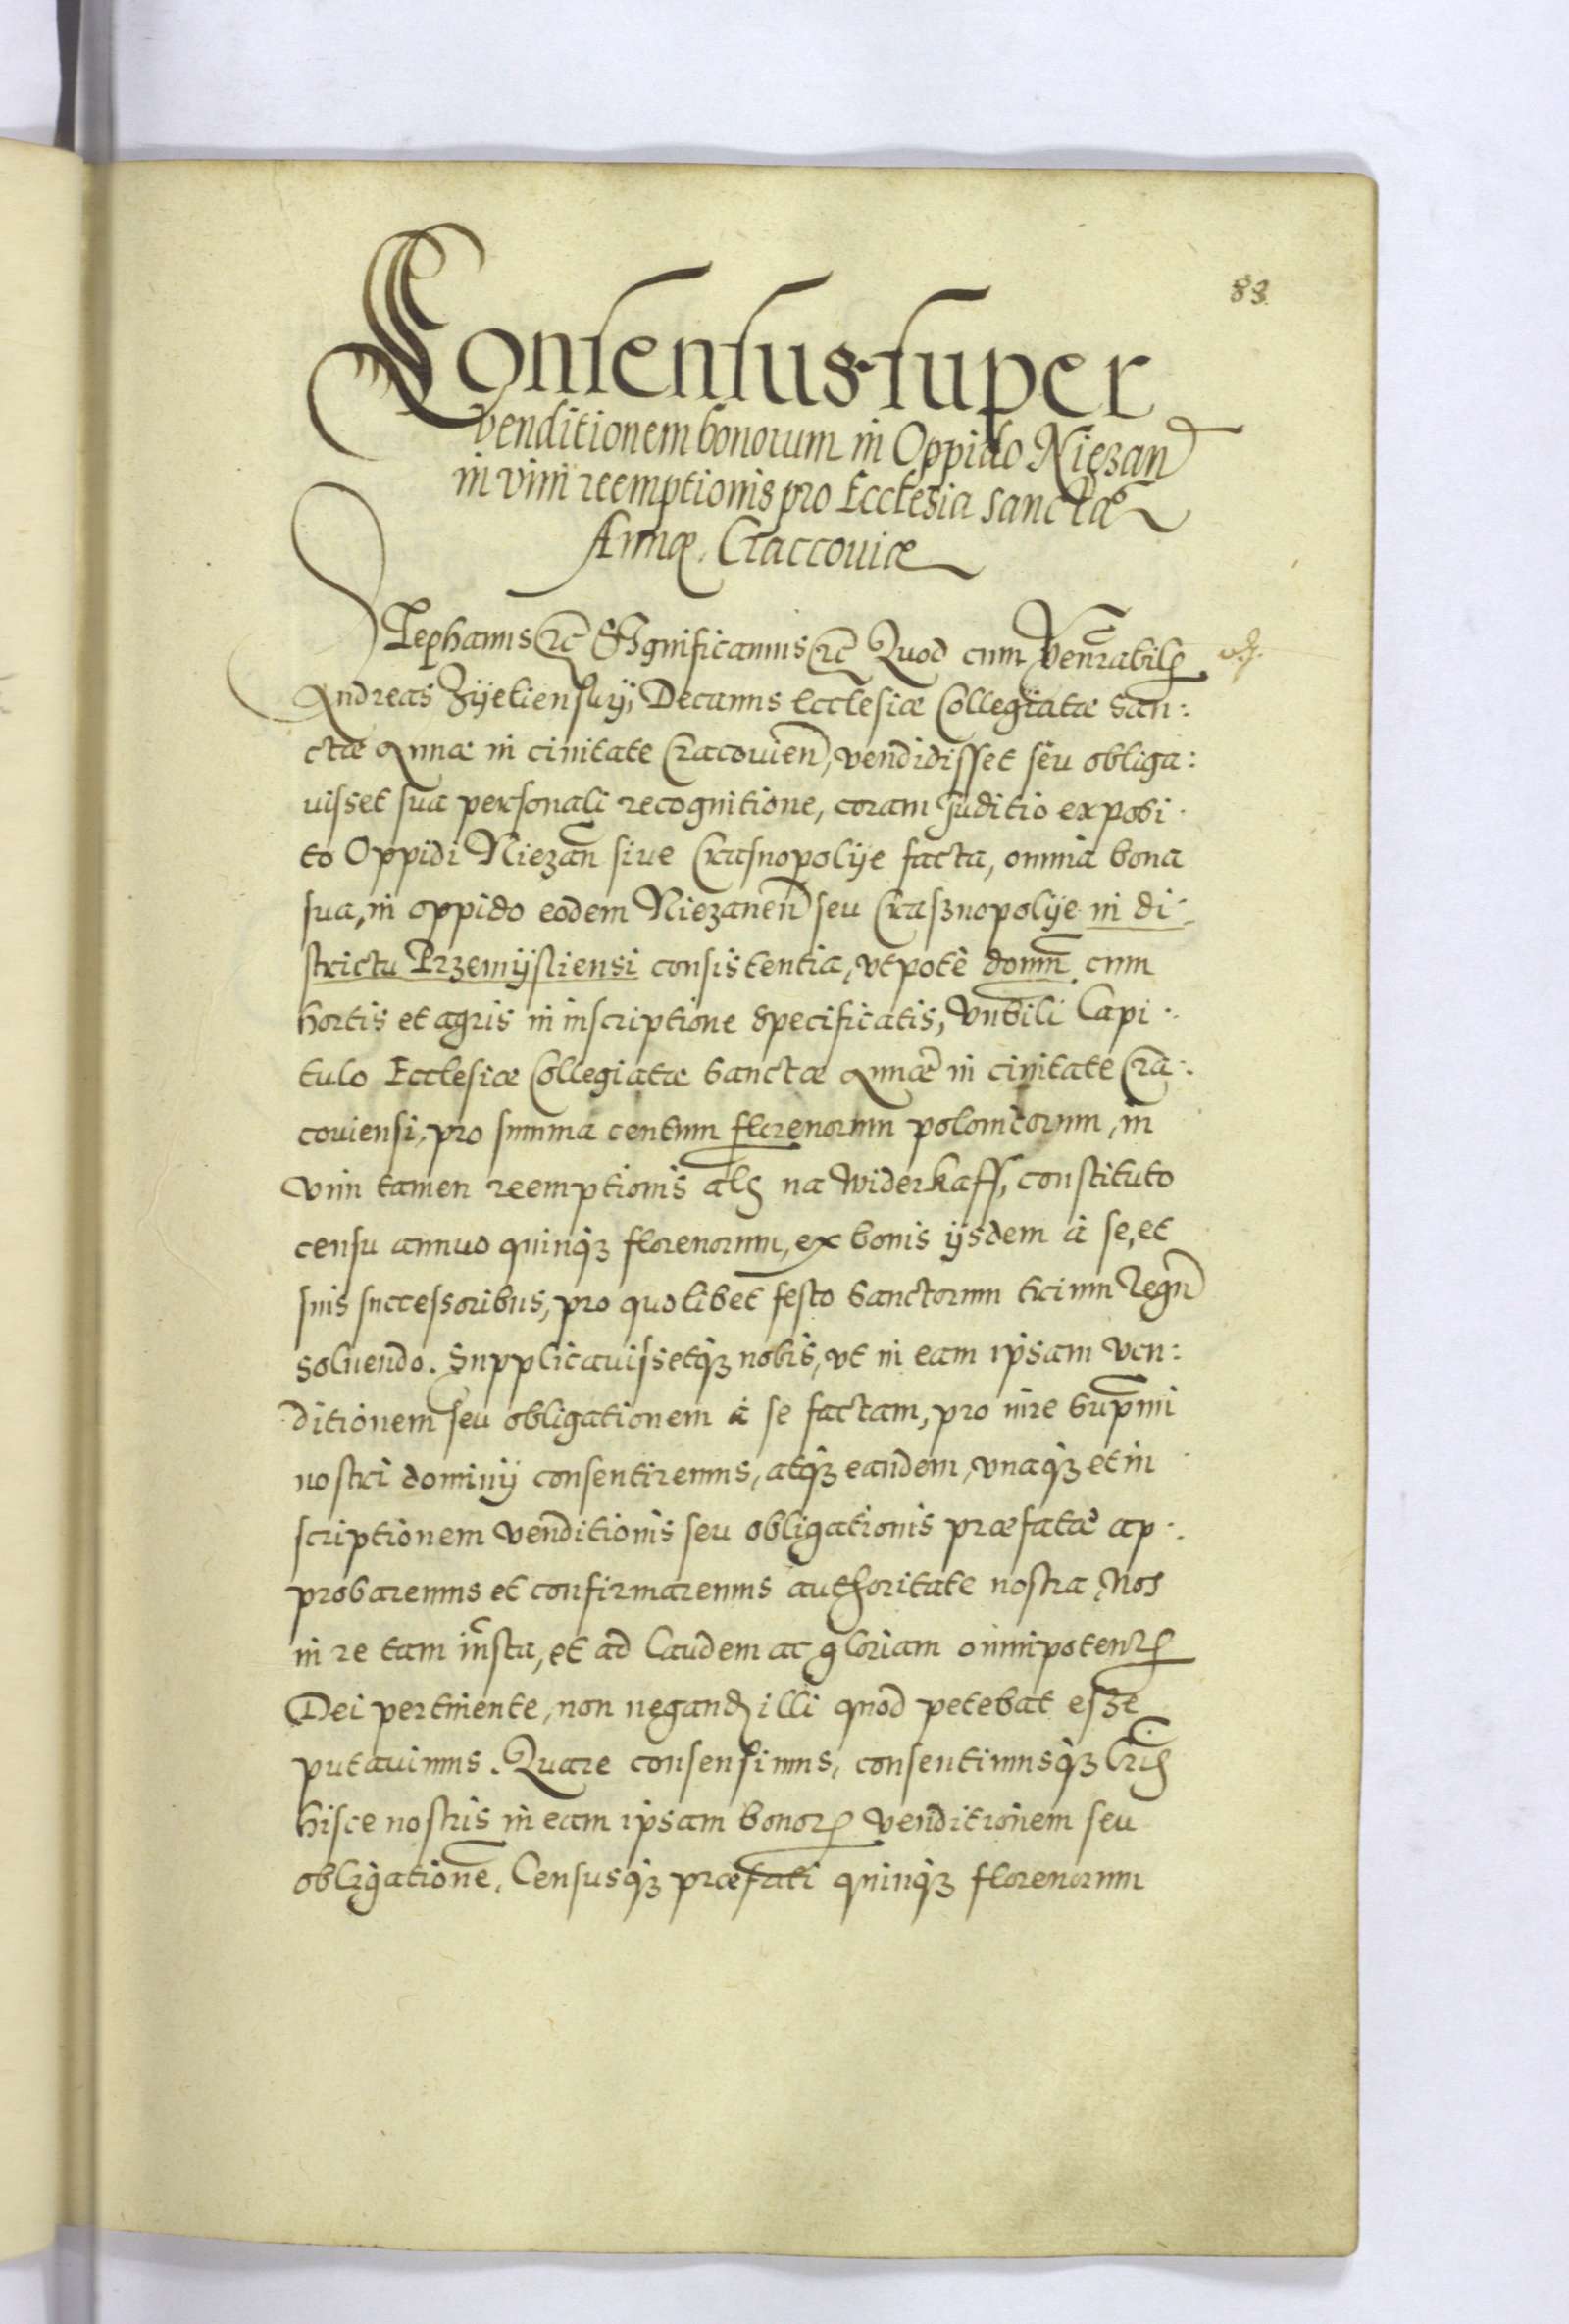 83.
Consensus super
venditionem bonorum in Oppido Niezan
in vim reemptionis pro Ecclesia sanctæ
Annæ. Craccoviæ
Stephanus etc Significamus etc Quod cum Venerabilis
Andreas Zÿetienskÿ, Decanus Ecclesiæ Collegiatæ San:
ctæ Annæ in civitate Cracovien, vendidisset seu obliga:
visset sua personali recognitione, coram Juditio exposi
to Oppidi Niezan sive Crasnopolÿe facta, omnia bona
sua, in oppido eodem Niezanen seu Crasznopolÿe in di:
strictu Przemÿsliensi consistentia, utpote domum cum
hortis et agris in inscriptione specificatis, Vnbili Capi:
tulo Ecclesiæ Collegiatæ Sanctæ Annæ in civitate Cra:
coviensi, pro summa centum florenorum polonicorum, in
vim tamen reemptionis als na Widerkaff, constituto
censu annuo quinqz florenorum, ex bonis ÿsdem à se, et
suis successoribus, pro quolibet festo Sanctorum trium Regu
solvendo. Supplicavissetqz nobis, ut in eam ipsam ven:
ditionem seu obligationem à se factam, pro iure supmi
nostri dominÿ consentiremus, atqz eandem, unaqz et in
scriptionem venditionis seu obligationis præfatæ ap:
probaremus et confirmaremus authoritate nostra, Nos
in re tam iusta, et ad laudem ac gloriam omnipotentis
Dei pertinente, non negandum illi quod petebat esze
putavimus. Quare consensimus, consentimusqz Lris
hisce nostris in eam ipsam bonorum venditionem seu
obligatione, Censusqz præfati quinqz florenorum